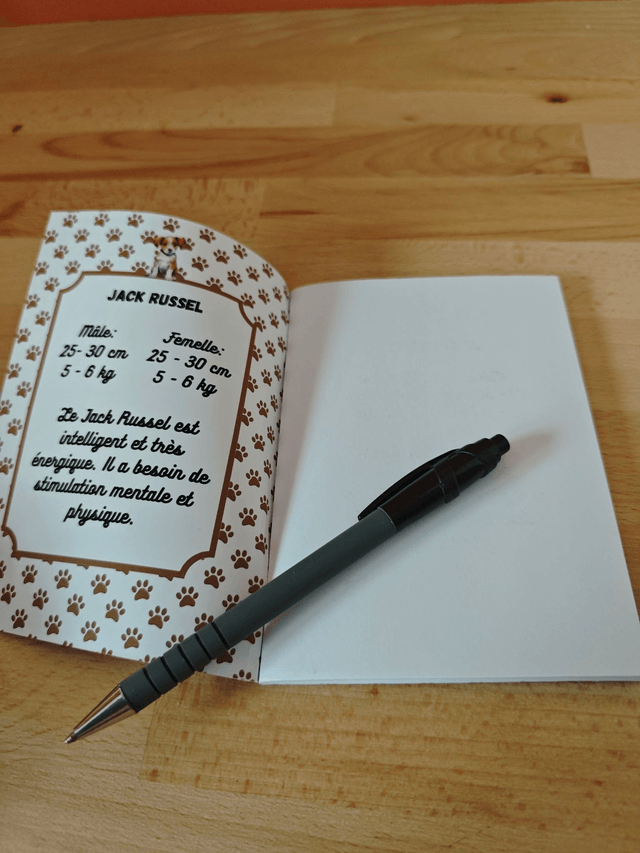 JACK RUSSEL
Mâle:
25- 30 cm
5 - 6 kg
Femelle:
25 - 30 cm
5 - 6 kg
Le Jack Russel est
intelligent et très
énergique. Il a besoin de
stimulation mentale et
physique.